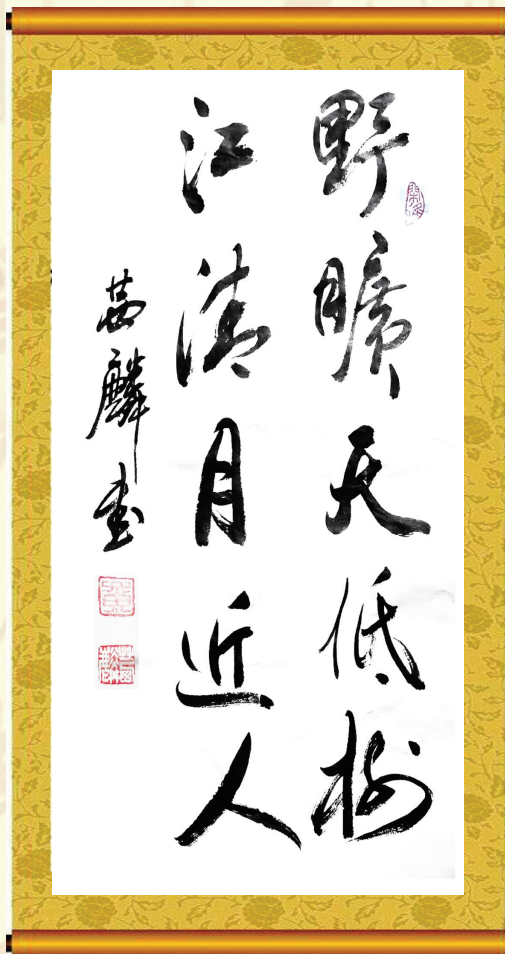 野曠天低樹
江清月近人
麟書